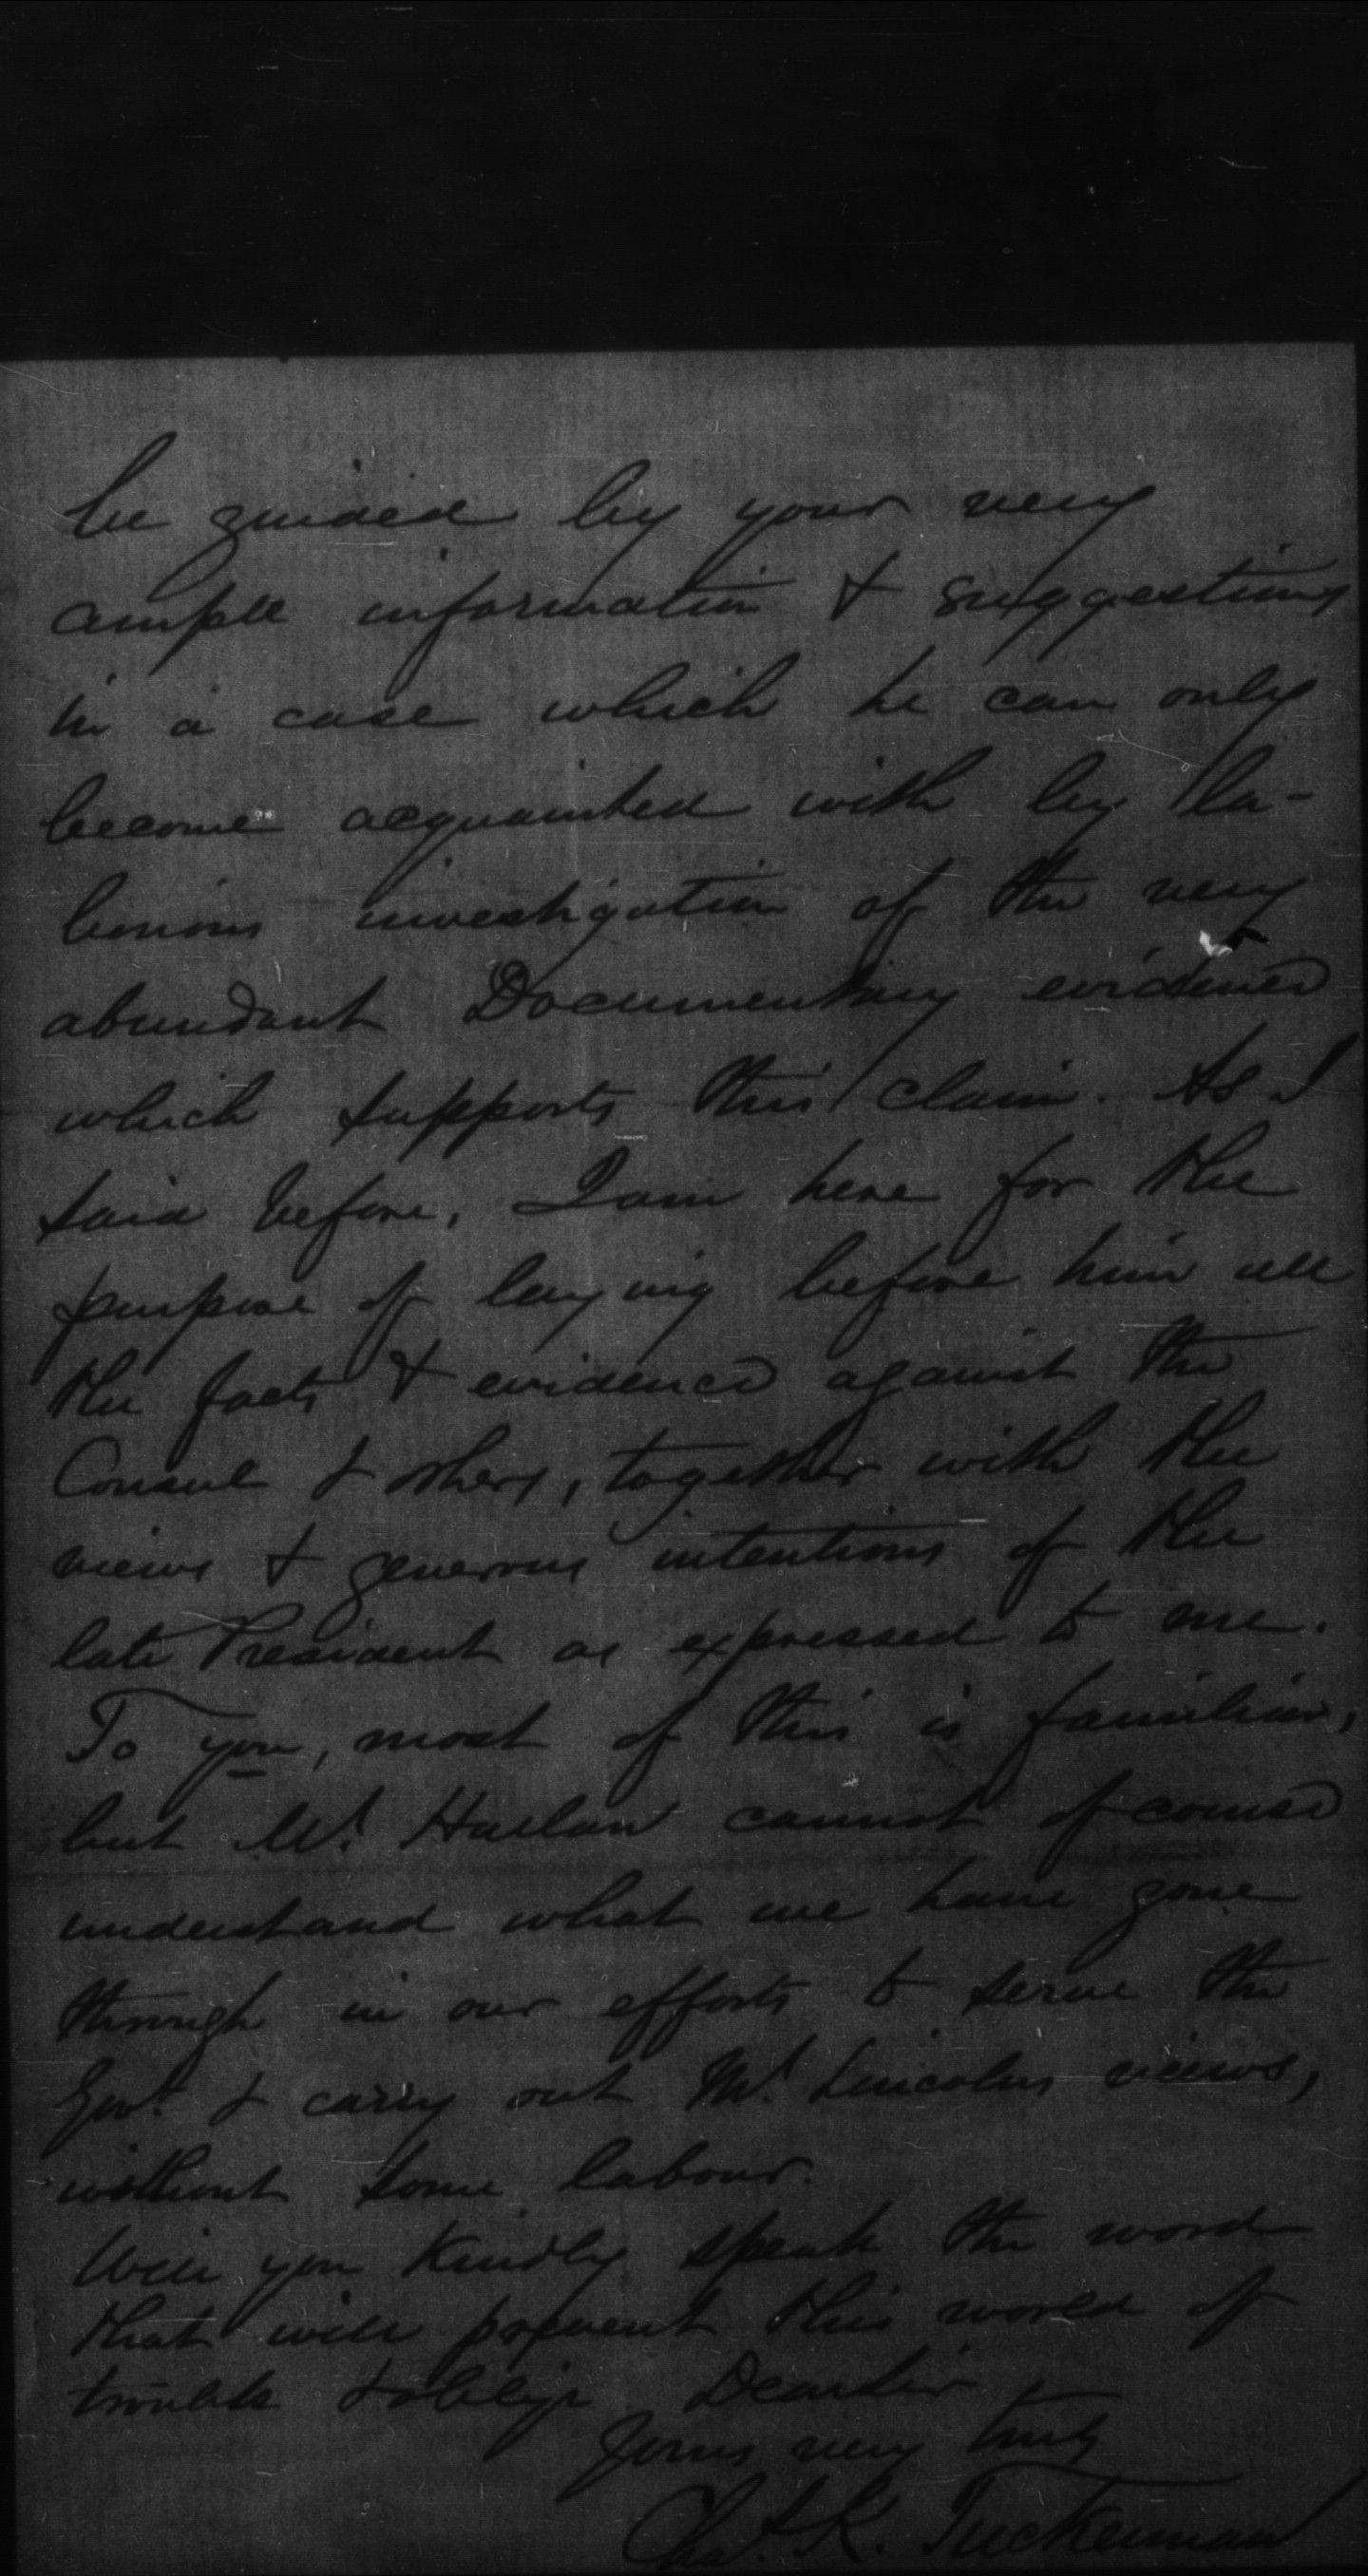 be guided by your very
ample information & suggestions
in a case which he can only
become acquainted with by la-
borious investigation of the very
abundant Documentary evidence
which supports this claim. As I
said before, I am here for the
purpose of laying before him all
the facts & evidence against the
Consul & others, together with the
views & generous intentions of the
late President as expressed to me.
To you, most of this is familiar,
but Mr. Harlan cannot of course
understand what we have gone
through in our efforts to serve the
Govt. & carry out Mr. Lincolns views,
without some labour.
Will you kindly speak the word
that will prevent this world of
trouble & oblige Dear Sir
Yours very truly
Chas. K. Tuckerman